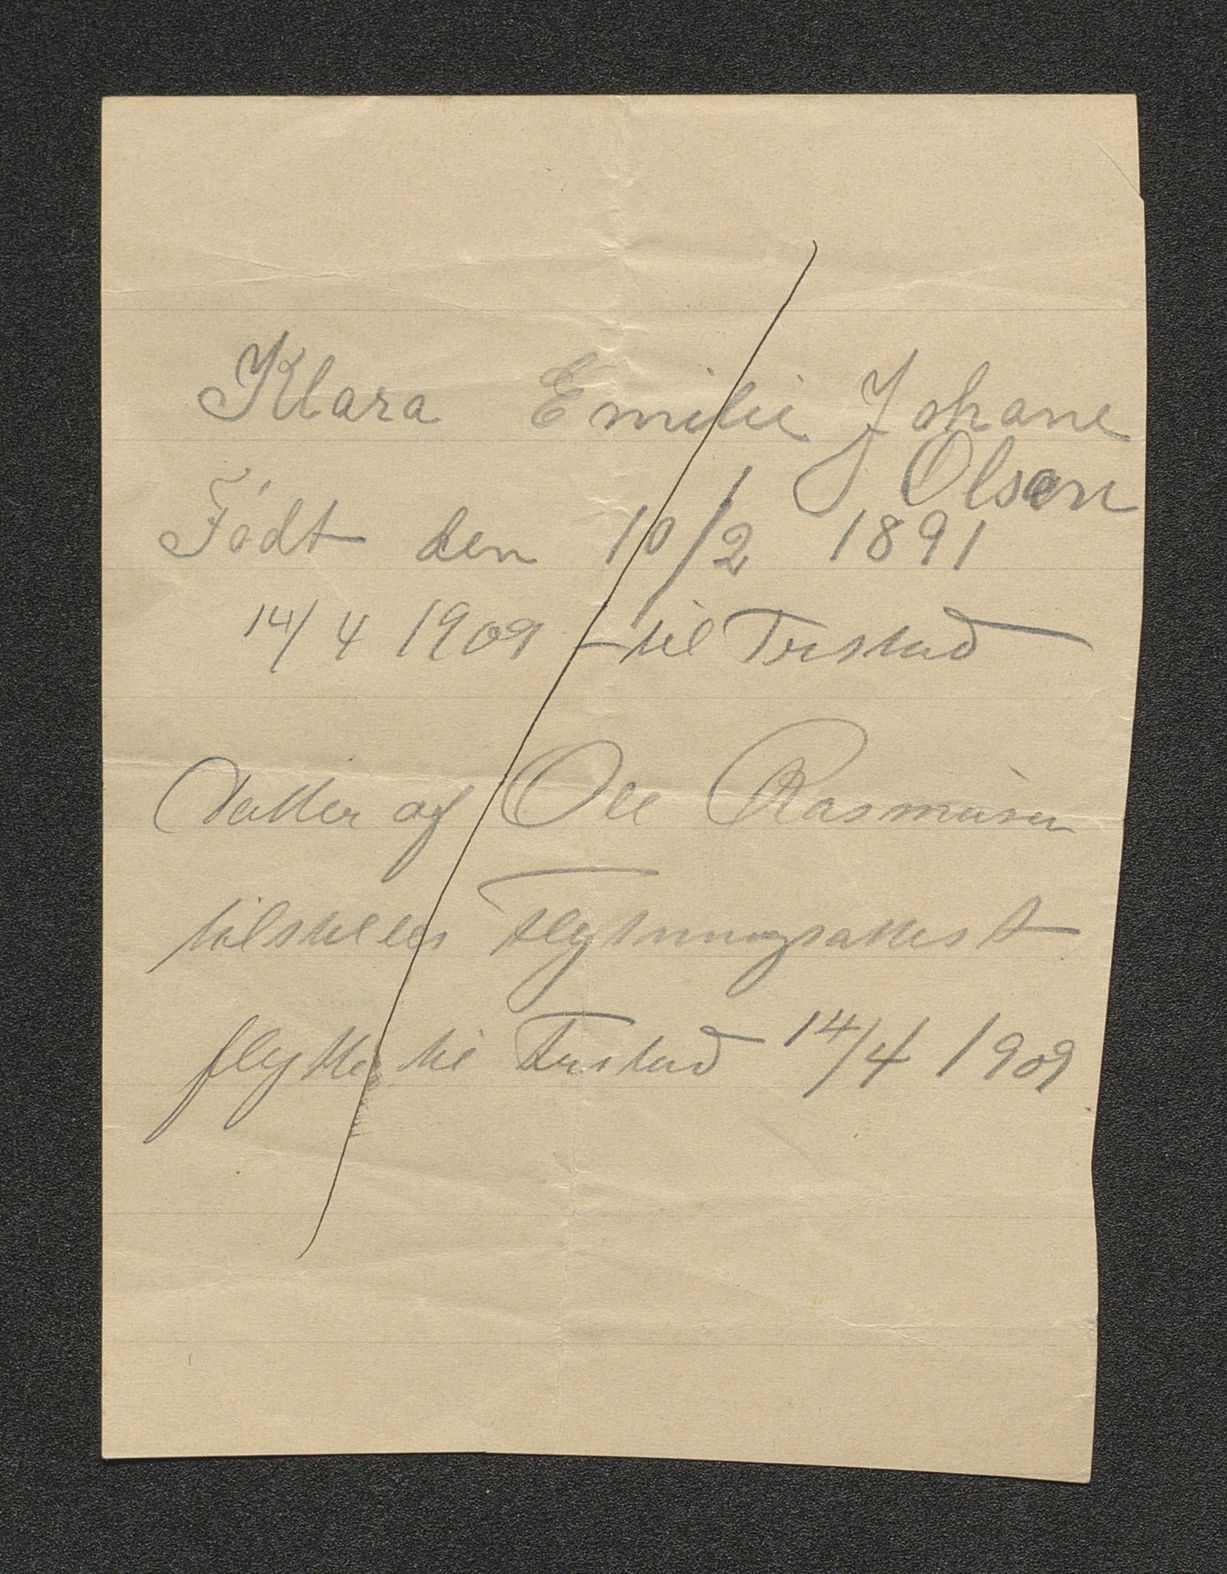 Klara Emilie Johane
Olsen
Født den 10/2 1891
14/4 1909 - til Trstad
Datter af Ole Rasmusen
tilstilles Flytningsattest
flytte til Trstad 14/4 1909